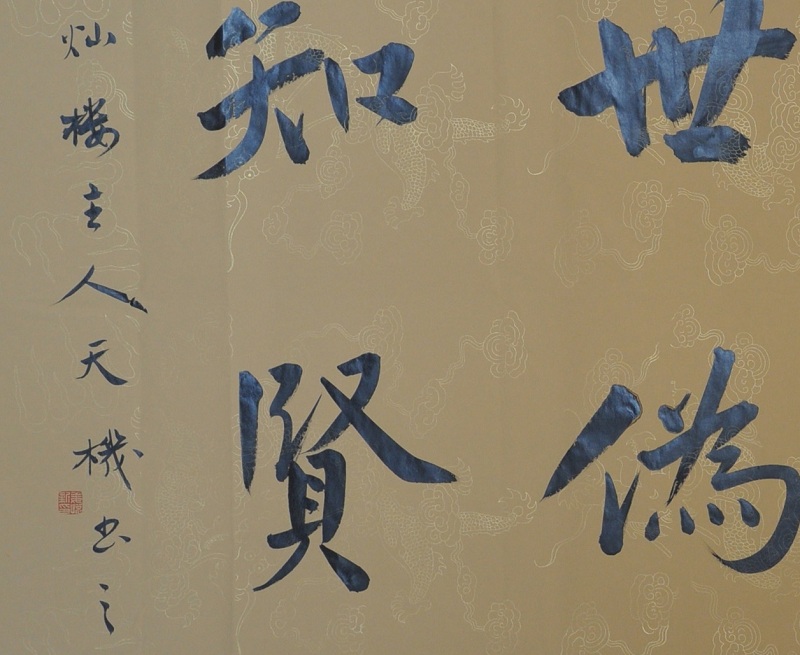 世偽
知賢
灿楼主人天機书之